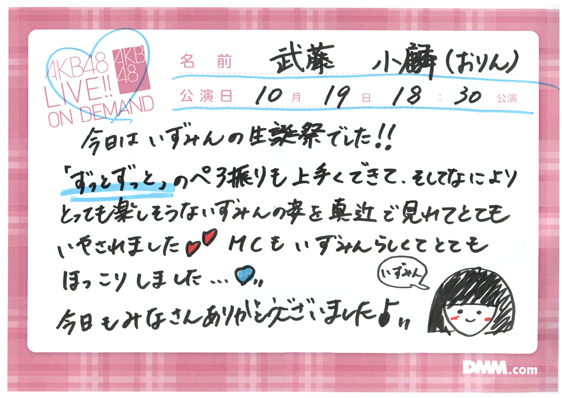 AKB48
LIVE!!
ON DEMAND
AKB
48
名前 武藤 小麟(おりん)
公演日 10月 19日 18:30公演
今日はいずみんの生誕祭でした!!
「ずっとずっと」のペろ振りも上手くできて、そしてなにより
とっても楽しそうないずみんの姿を真近で見れてとても
いやされました MCもいずみんらしくてとても
ほっこりしました…
いずみん
今日もみなさんありがとうございました♪
DMM.com